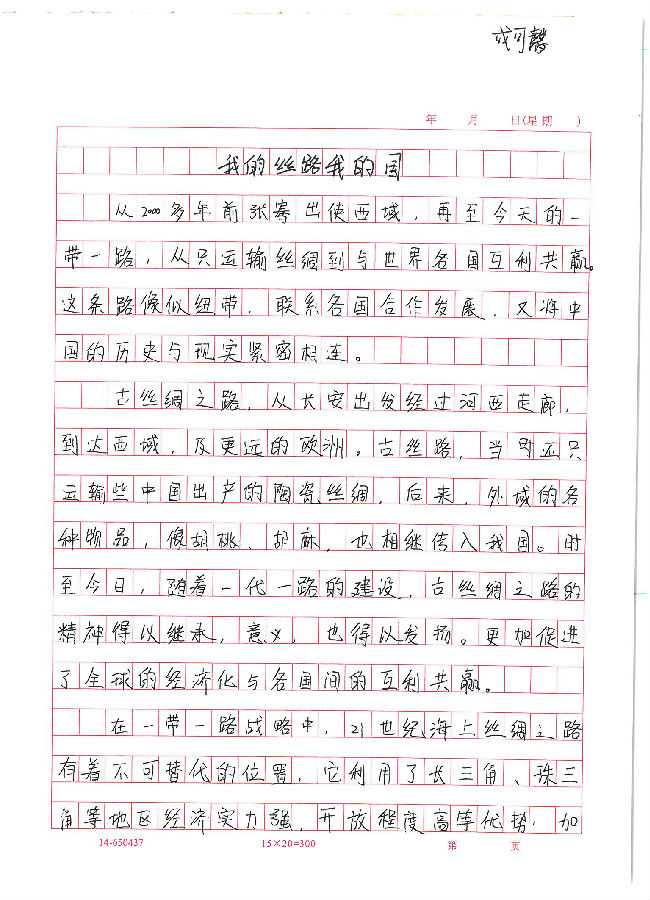 戎可馨
年 月 日(星期 )
我的丝路我的国
从2000多年前张骞出使西域，再至今天的一
带一路，从只运输丝绸到与世界各国互利共赢。
这条路像似纽带，联系各国合作发展，又将中
国的历史与现实紧密相连。
古丝绸之路，从长安出发经过河西走廊，
到达西域，及更远的欧洲。古丝路，当时还只
运输些中国出产的陶瓷丝绸，后来，外域的各
种物品，像胡桃、胡麻，也相继传入我国。时
至今日，随着一代一路的建设，古丝绸之路的
精神得以继承，意义，也得以发扬。更加促进
了全球的经济化与各国间的互利共赢。
在一带一路战略中，21世纪海上丝绸之路
有着不可替代的位置，它利用了长三角、珠三
角等地区经济实力强，开放程度高等优势，加
14-650437 15×20=300 第 页